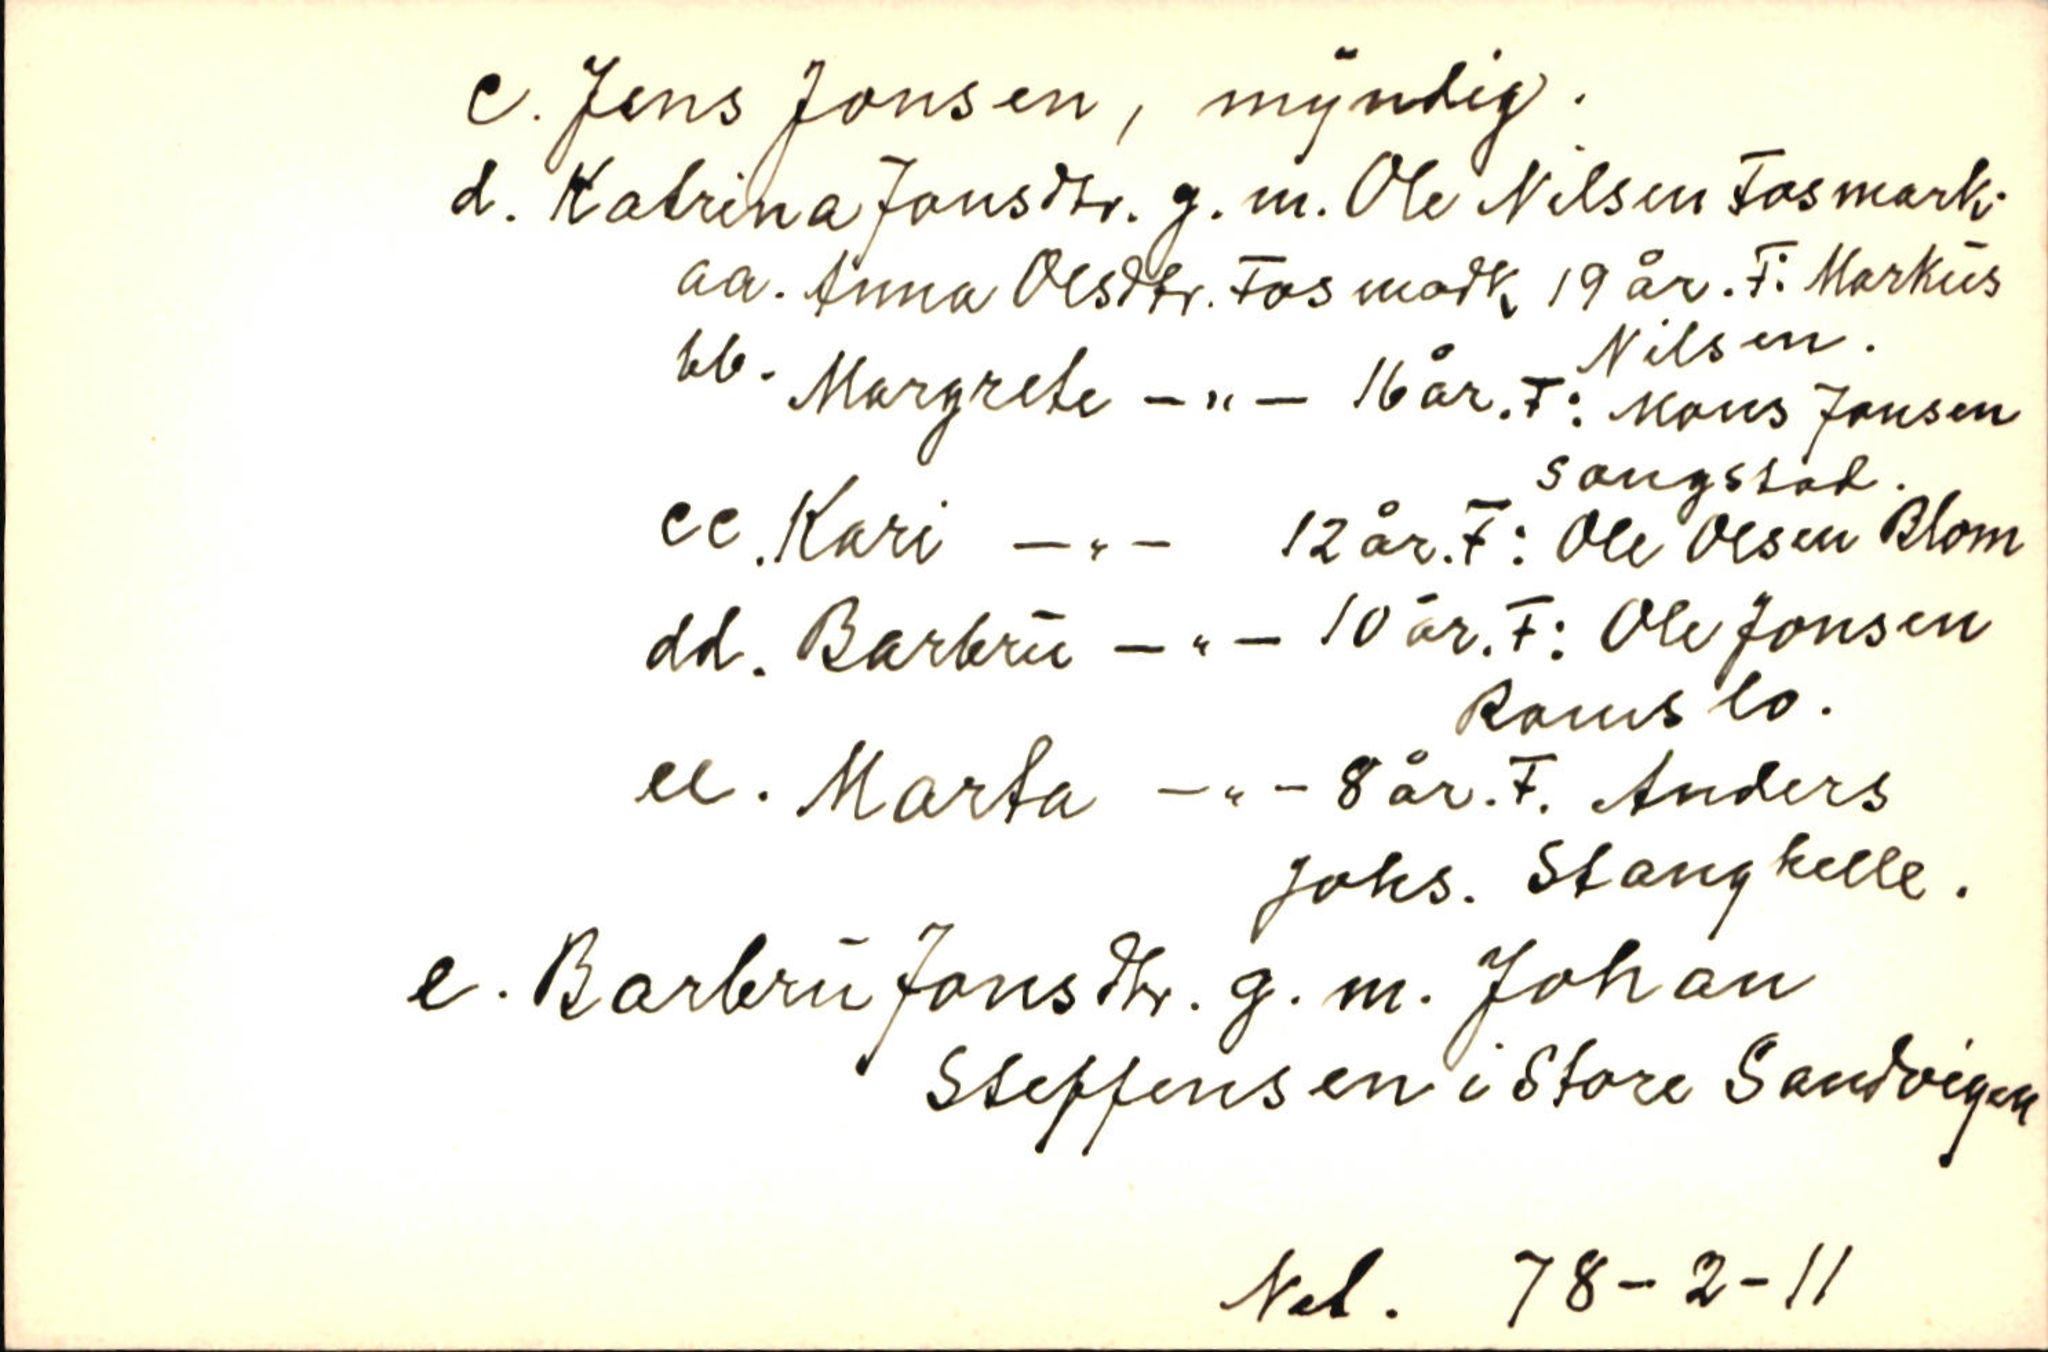 c. Jens Jonsen, myndig.
d. Katrina Jonsdtr. g. m. Ole Nilsen Fosmark.
aa. Anna Olsdtr. Fosmark 19 år. F: Markus
Nilsen.
bb. Margrete -"- 16 år. F: Mons Jonsen
Songstad.
cc. Kari -"- 12 år. F: Ole Olsen Blom
dd. Barbru -"- 10 år. F: Ole Jonsen
Romslo.
ee. Marta -"- 8 år. F. Anders
Johs. Stanghelle.
e. Barbru Jonsdtr. g. m. Johan
Steffensen i Store Sandvigen
Nel. 78-2-11